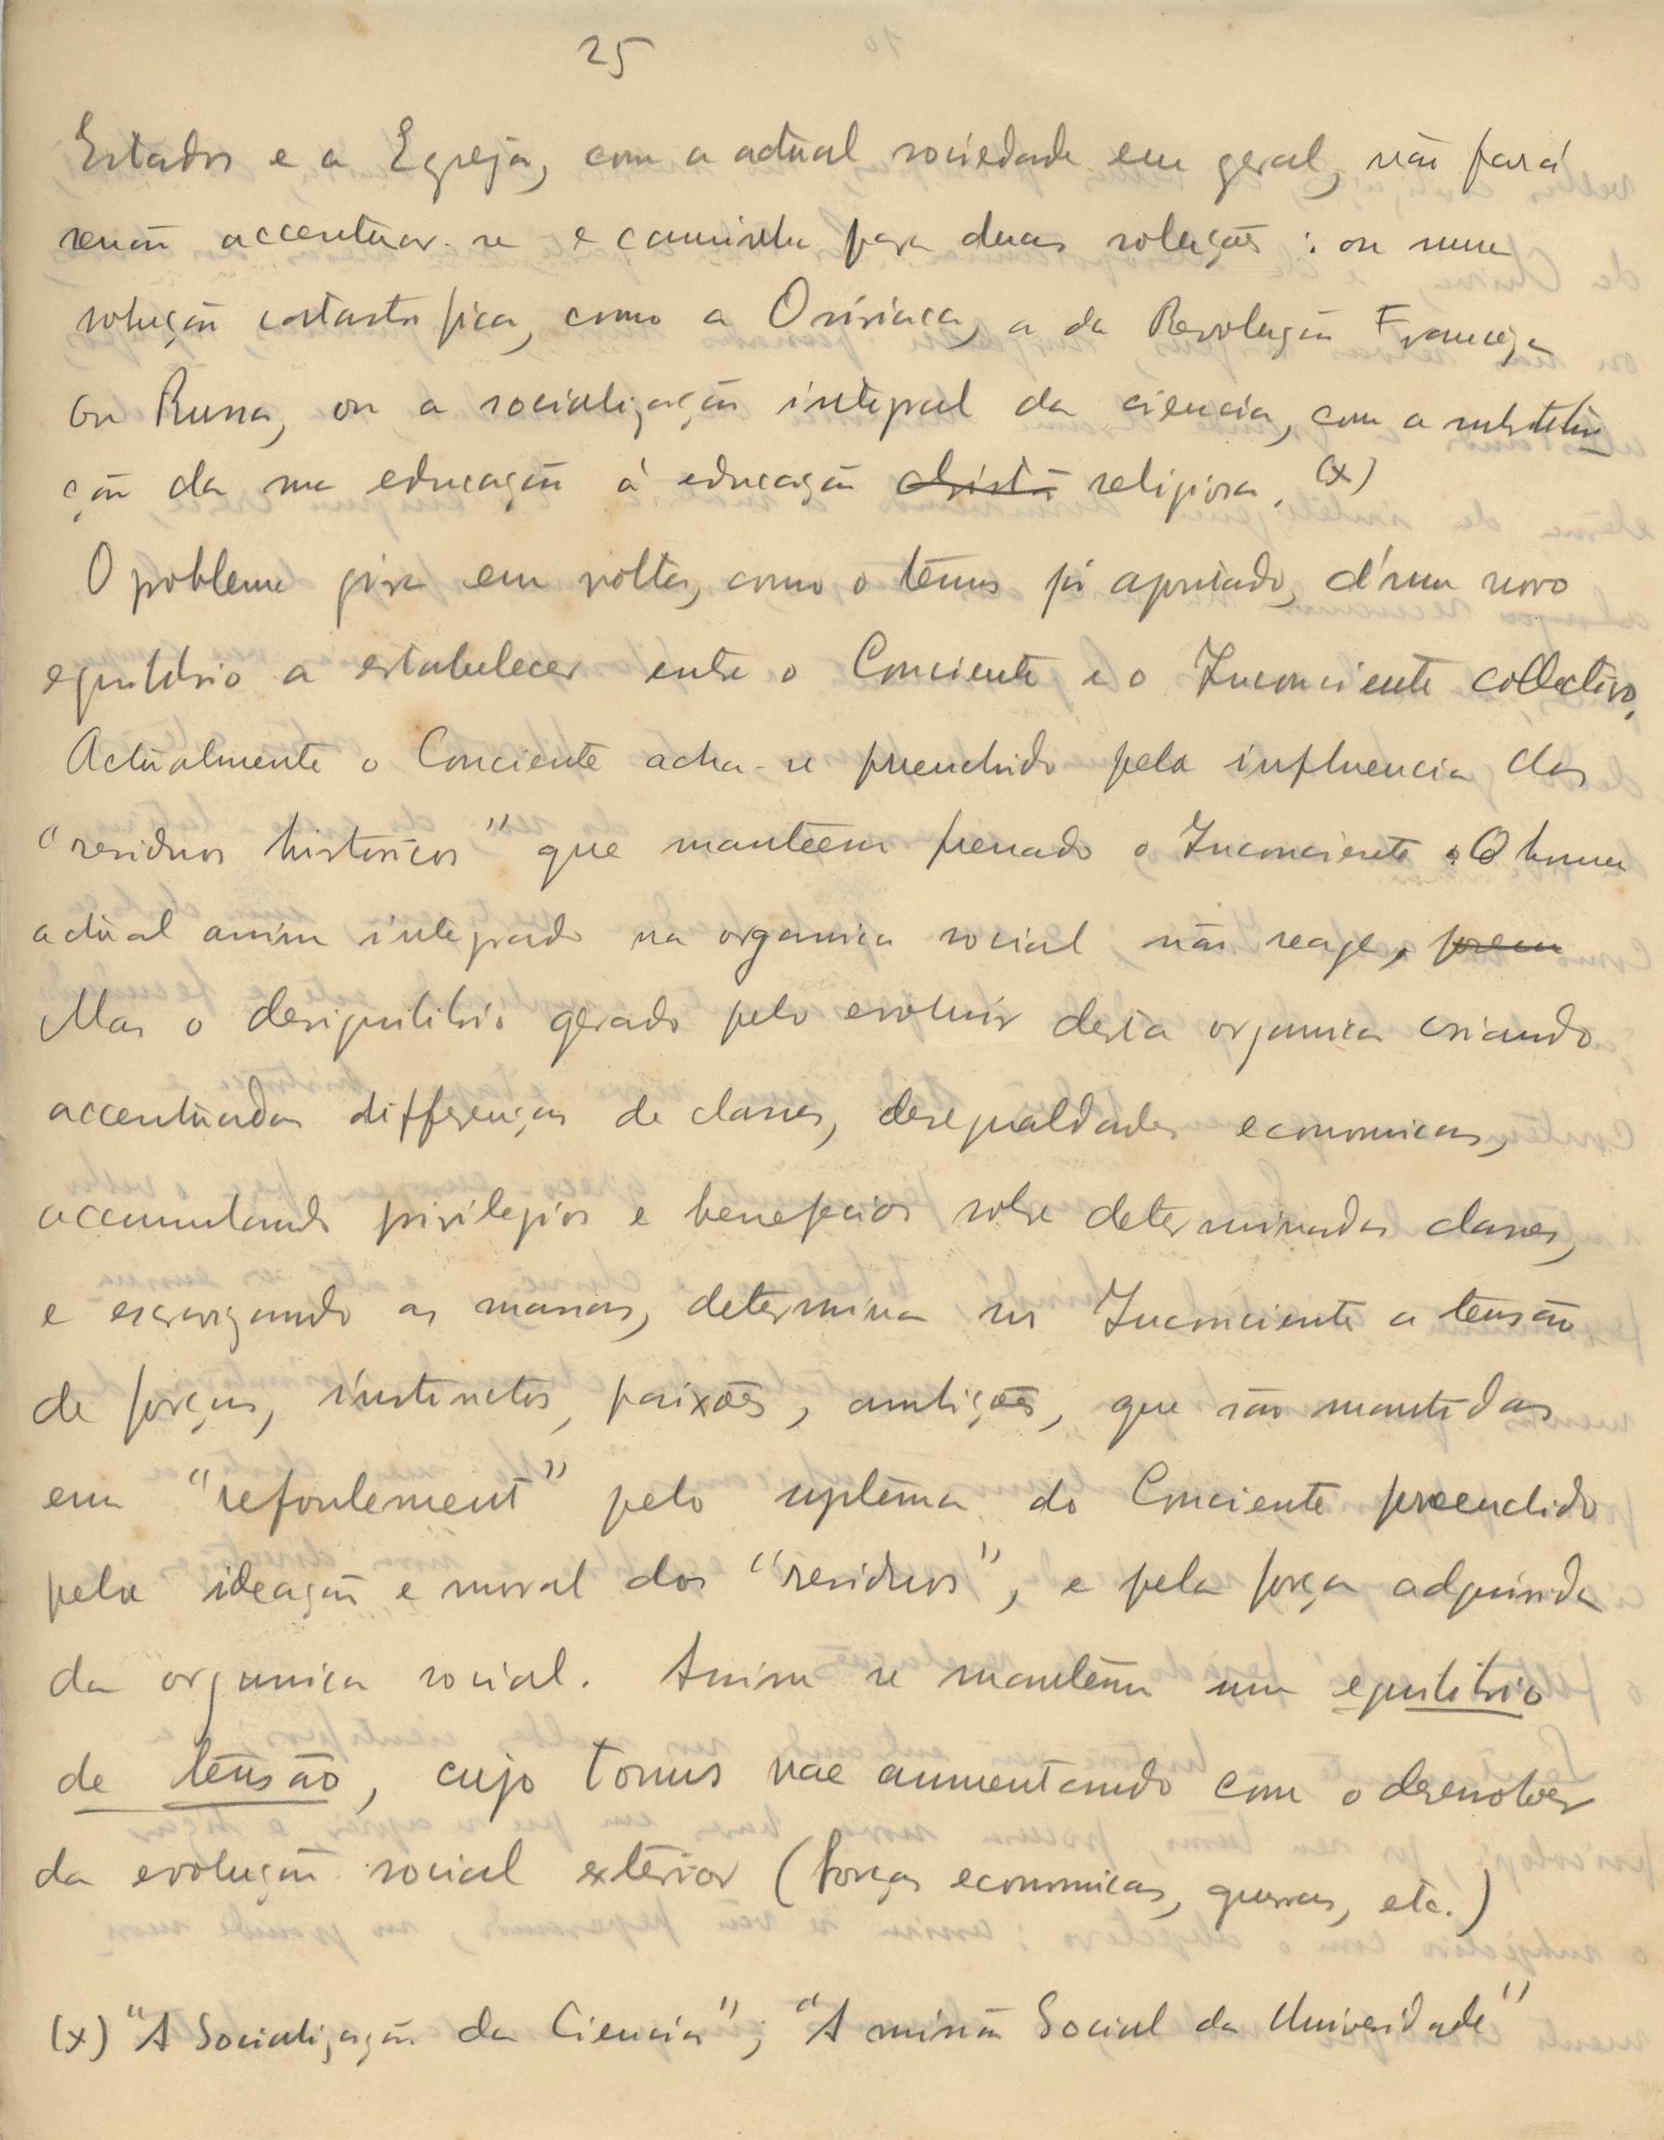 25
Estados e a Egreja, com a actual sociedade em geral, não fará
senão accentuar-se e caminha para duas soluções: ou uma
solução catastrofica, como a Osiriaca, a da Revolução Franceza
ou Russa, ou a socialização integral da ciencia, com a substitui
ção da sua educação á educação christã religiosa. (x)
O problema gira em volta, como o temos já apontado, d'um novo
equilibrio a estabelecer entre o Conciente e o Inconciente collectivo.
Actualmente o Conciente acha-se preenchido pela influencia dos
"residuos historicos" que manteem frenado o Inconciente. O homem
actual assim integrado na organica social não reage, porem
Mas o desiquilibrio gerado pelo evoluir desta organica criando
accentuadas differenças de classes, desegualdades economicas,
accumulando privilegios e beneficios sobre determinadas classes,
e escravizando as massas, determina no Inconciente a tensão
de forças, instinctos, paixões, ambições, que são mantidas
em "refoulement" pelo systema do Conciente preenchido
pela ideação e moral dos "residuos", e pela força adquirida
da organica social. Assim se mantem um equilibrio
de tensão, cujo tonus vae aumentando com o desenvolver
da evolução social exterior (forças economicas, guerras, etc.)
(x) "A Socialização da Ciencia"; "A missão Social da Universidade"